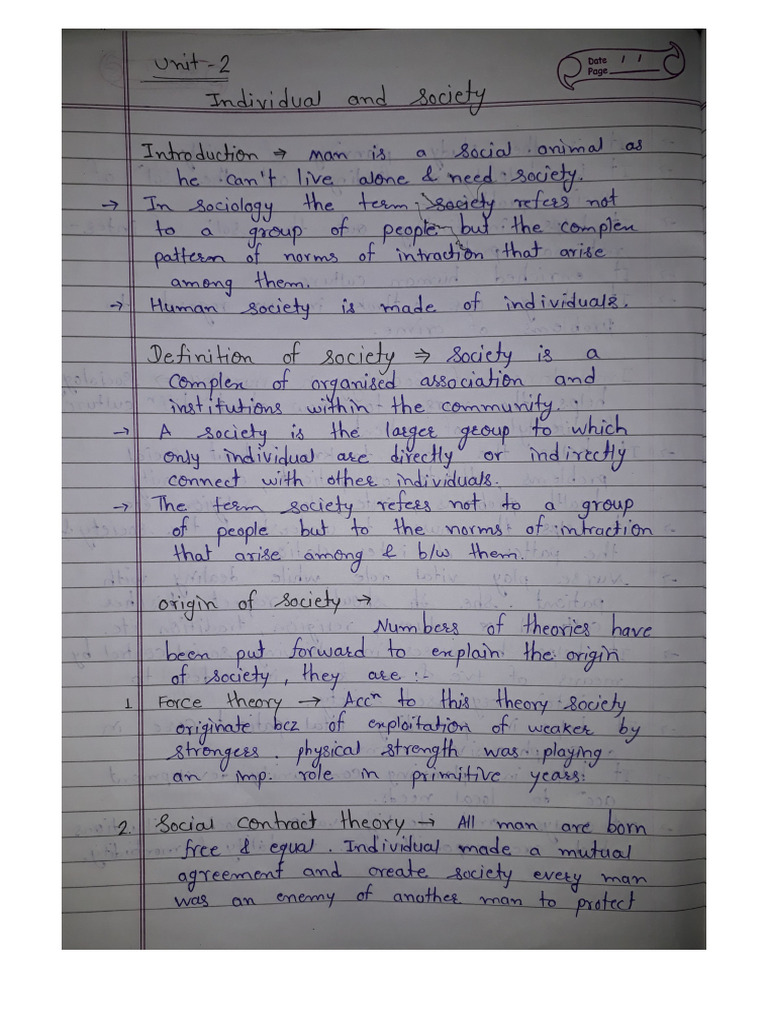 Unit-2
Date / /
Page
Individual and society
Introduction → man is a social animal as
he can't live alone & need society.
→ In sociology the term society refers not
to a group of people but the complen
pattern of norms of intraction that arise
among them.
→ Human society is made of individuals.
Definition of society ⇒ Society is a
complen of organised association and
institutions within the community.
→ A society is the larger group to which
only individual are directly or indirectly
connect with other individuals.
→ The term society refers not to a group
of people but to the norms of intraction
that arise among & b/w them.
Origin of society →
Numbers of theories have
been put forward to explain the origin
of society, they are :-
1 Force theory → Accⁿ to this theory society
originate bcz of exploitation of weaker by
strongers. physical strength was playing
an imp. role in primitive years.
2. Social contract theory → All man are born
free & equal. Individual made a mutual
agreement and create society every man
was an enemy of another man to protect